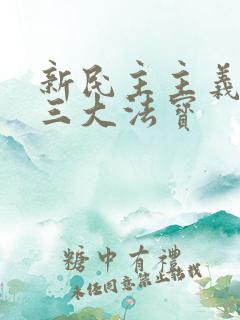 新民主主義
三大法寶
糖中有禮
未经同意禁止转载